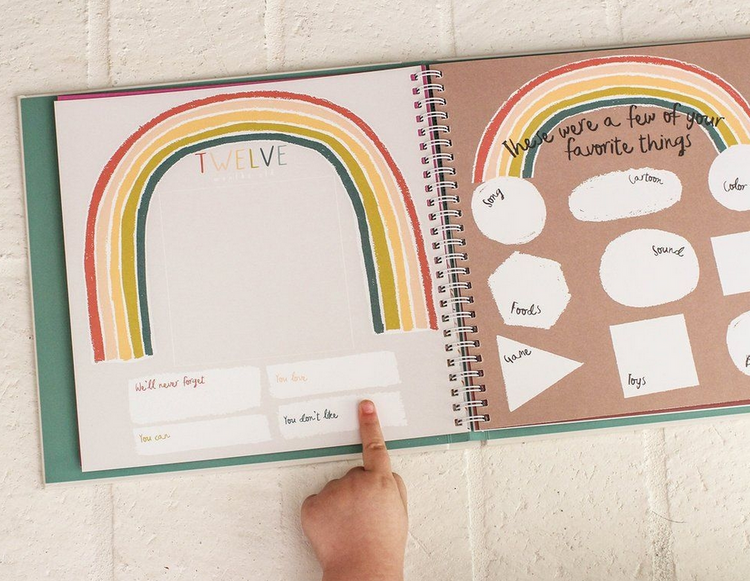 TWELVE
We'll never forget
You love
You can
You don't like
These were a few of your
favorite things
Song
Cartoon
Color
Sound
Foods
Game
Toys